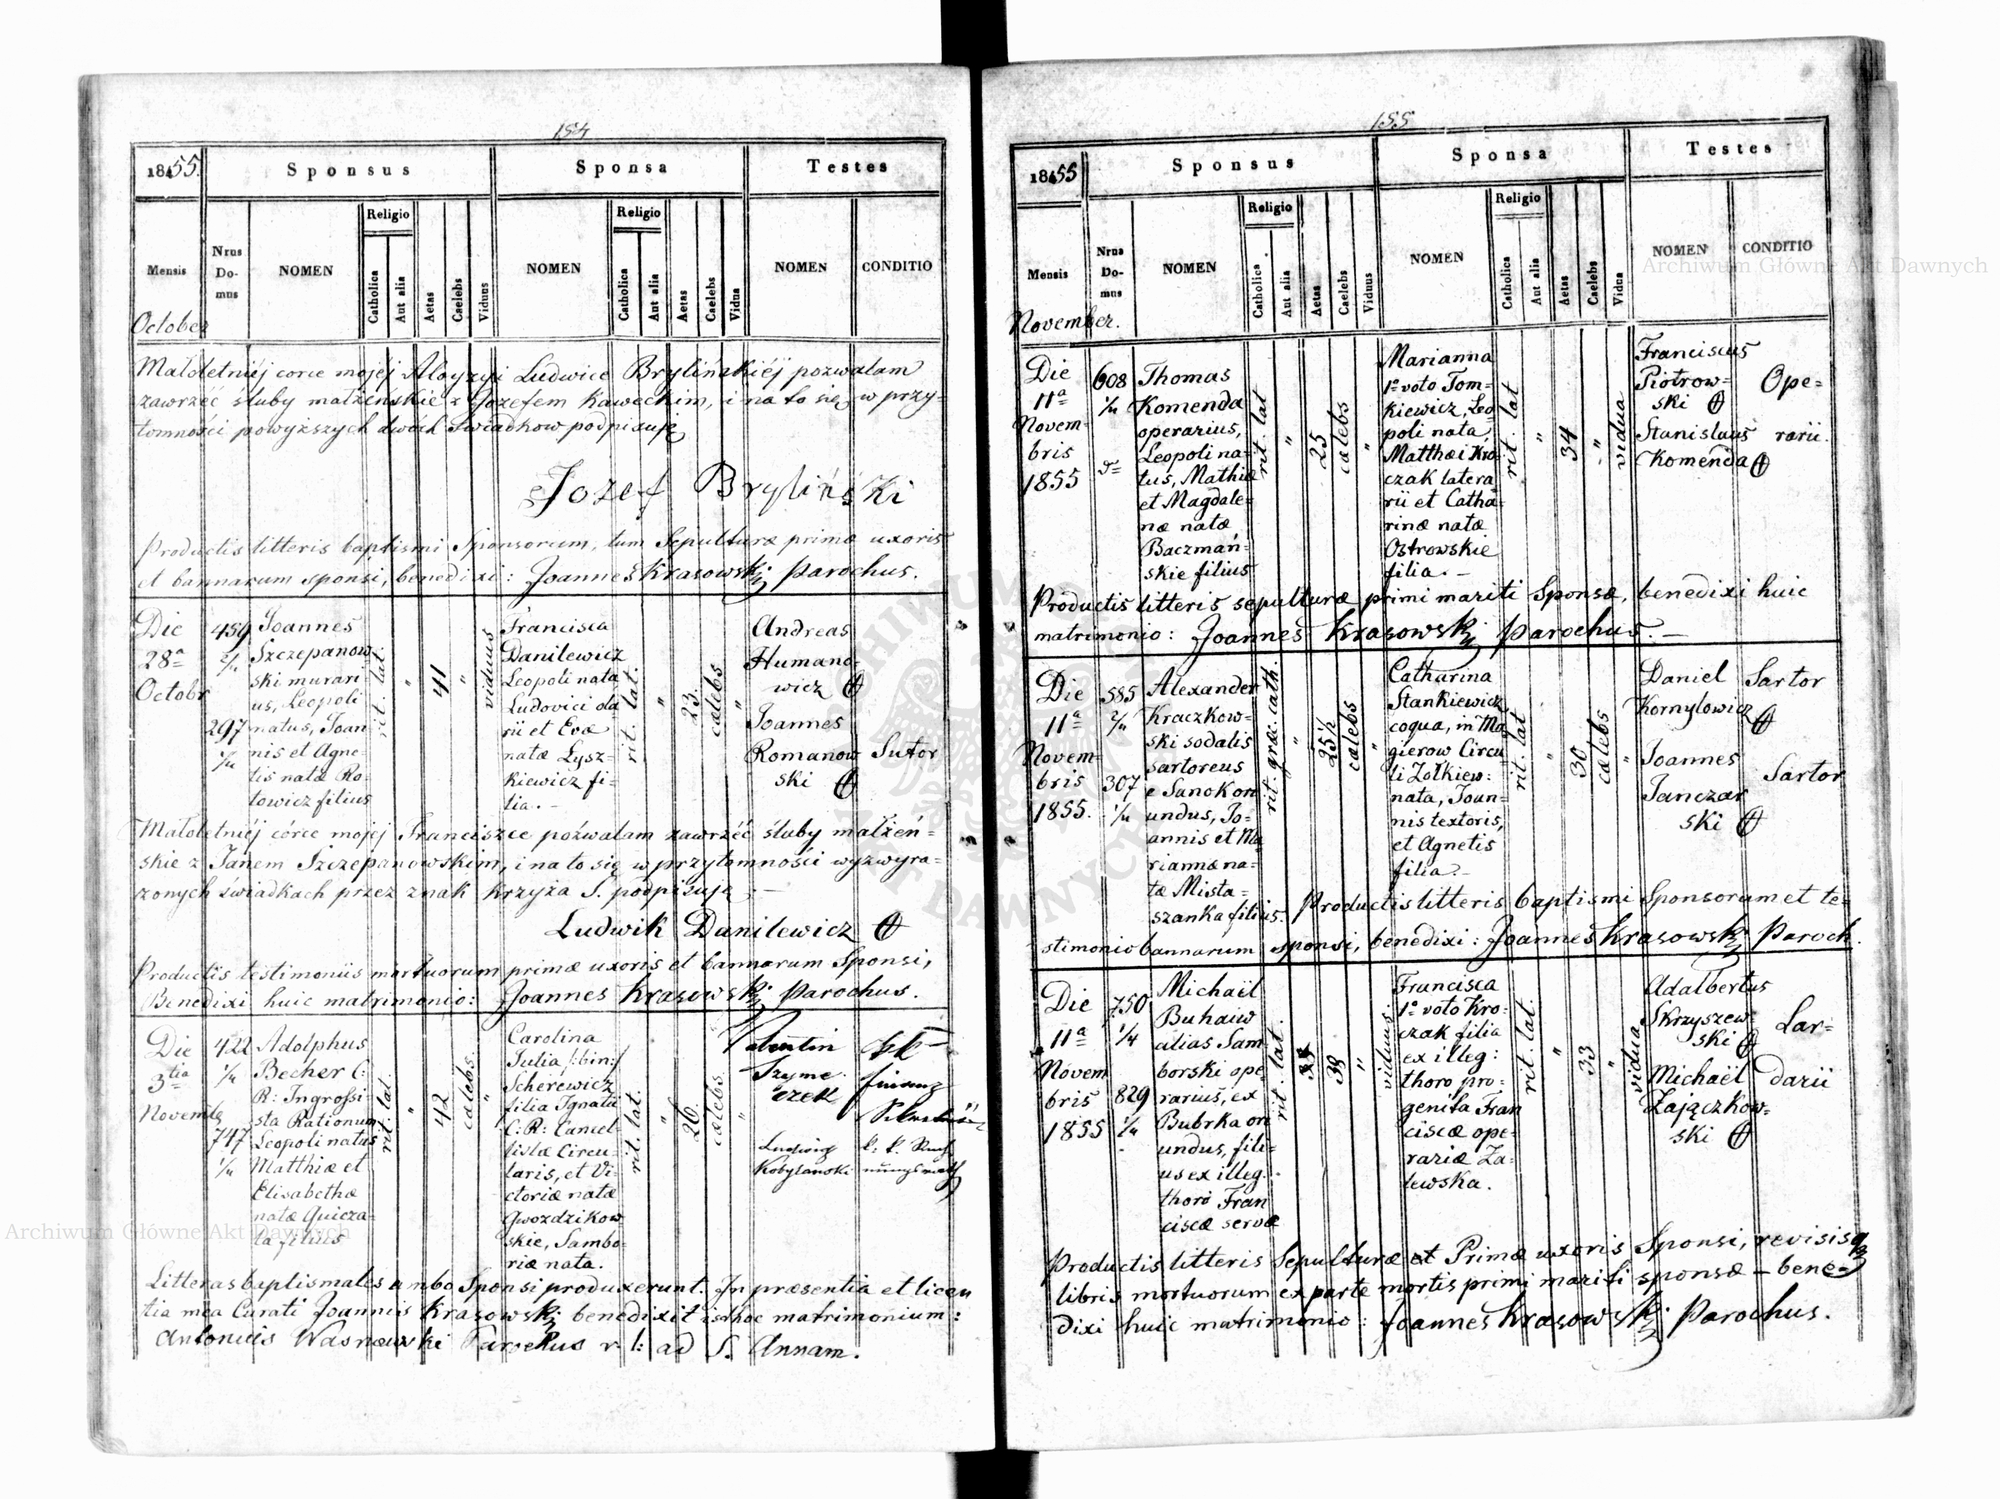 154
1855.
Sponsus
Sponsa
Testes
Mensis
Nrus Do- mus
NOMEN
Religio
Catholica
Aut alia
Aetas
Caelebs
Viduus
NOMEN
Religio
Catholica
Aut alia
Aetas
Caelebs
Vidua
NOMEN
CONDITIO
October
Małoletniéj corce mojéj Aloyzyi Ludwice Brylińskiéj pozwalam
zawrzéć śluby małżeńskie z Jozefem Kaweckim, i na to się w przy-
tomności powyższych dwóch Swiadkow podpisuję
Jozef Bryliński
Productis litteris baptismi Sponsorum, tum Sepulturæ primæ uxoris
et bannorum sponsi, benedixi: Joannes Krasowski Parochus.
Die
28ª
Octobr
456
2/4
297
1/4
Joannes
Szczepanow
ski murari
us, Leopoli
natus, Joan
nis et Agne
tis natæ Ro
towicz filius
rit. lat.
"
41
"
viduus
Francisca
Danilewicz
Leopoli nata
Ludovici ola
rii et Evæ
natæ Lysz-
kiewicz fi-
lia. -
rit. lat.
"
23.
cælebs
"
Andreas
Humano-
wicz
Joannes
Romanow
ski
Sutor
Małoletniéj córce mojéj Franciszce pozwalam zawrzéć śluby małżeń=
skie z Janem Szczepanowskim, i na to się w przytomności wyzwyra-
zonych swiadkach przez znak krzyża S. podpisuję :-
Ludwik Danilewicz
Productis testimoniis mortuorum primæ uxoris et bannorum Sponsi,
Benedixi huic matrimonio: Joannes Krasowski Parochus.
Die
3tia
Novemb
422
1/4
747
1/4
Adolphus
Becher C:
R: Ingrossi-
sta Rationum
Leopoli natus
Matthiæ et
Elisabethæ
natæ Quicza-
la filius
rit. lat.
"
42
cælebs.
"
Carolina
Julia /:bin:/
Scherewicz
filia Ignatii
C: R: Cancel-
listæ Circu-
laris, et Vi-
ctoriæ natæ
Gwozdzikow
skie, Sambo-
riæ nata.
rit. lat.
"
26.
cælebs
"
Valentin
Szyme-
czek
Ludwig
Kobylanski
Finanz
Litteras baptismales ambo Sponsi produxerunt. In præsentia et licen
tia mea Curati Joannis Krasowski benedixit isthoc matrimonium:
Antonius Wasnewski Parochus r. l: ad S. Annam.
155
1855
Sponsus
Sponsa
Testes
Mensis
Nrus Do- mus
NOMEN
Religio
Catholica
Aut alia
Aetas
Caelebs
Viduus
NOMEN
Religio
Catholica
Aut alia
Aetas
Caelebs
Vidua
NOMEN
CONDITIO
November.
Die
11ª
Novem-
bris
1855
608
1/4
Thomas
Komenda
operarius,
Leopoli na-
tus, Mathiæ
et Magdale-
næ natæ
Baczmań-
skie filius
rit. lat
"
25
cælebs
"
Marianna
1º voto Tom-
kiewicz, Leo
poli nata,
Matthæi Kro
czak latera
rii et Catha-
rinæ natæ
Ostrowskie
filia. -
rit. lat
"
34
"
vidua
Franciscus
Piotrow-
ski
Stanislaus
Komenda
Ope-
rarii.
Productis litteris sepulturæ primi mariti Sponsæ, benedixi huic
matrimonio: Joannes Krasowski Parochus. -
Die
11ª
Novem-
bris
1855.
585
2/4
307
1/4
Alexander
Kraczkow-
ski sodalis
sartoreus
e Sanok ori
undus, Jo-
annis et Ma
riannæ na-
tæ Mista-
szanka filius.
rit. græ. cath.
"
25½
cælebs
"
Catharina
Stankiewicz
coqua, in Ma
gierow Circu
li Zołkiew:
nata, Joan-
nis textoris,
et Agnetis
filia. -
rit. lat
"
30
cælebs
"
Daniel
Kornylowicz
Joannes
Janczar
ski
Sartor
Sartor
Productis litteris baptismi Sponsorum et te-
stimonio bannorum sponsi, benedixi: Joannes Krasowski Paroch.
Die
11ª
Novem
bris
1855
750
1/4
829
1/4
Michaël
Buhaiw
alias Sam
borski ope-
rarius, ex
Bubrka ori
undus, fili-
us ex illeg.
thoro Fran
ciscæ servæ
rit. lat.
38
"
viduus
Francisca
1º voto Kro-
czak filia
ex illeg:
thoro pro-
genita Fran
ciscæ ope-
rariæ Za-
lewska.
rit. lat.
"
33
"
vidua
Adalbertus
Skrzyszew-
ski
Michaël
Zajączkow-
ski
Lar-
darii
Productis litteris Sepulturæ et Primæ uxoris Sponsi, revisisq
libris mortuorum ex parte mortis primi mariti sponsæ - bene-
dixi huic matrimonio: Joannes Krasowski Parochus.
Archiwum Główne Akt Dawnych
Archiwum Główne Akt Dawnych